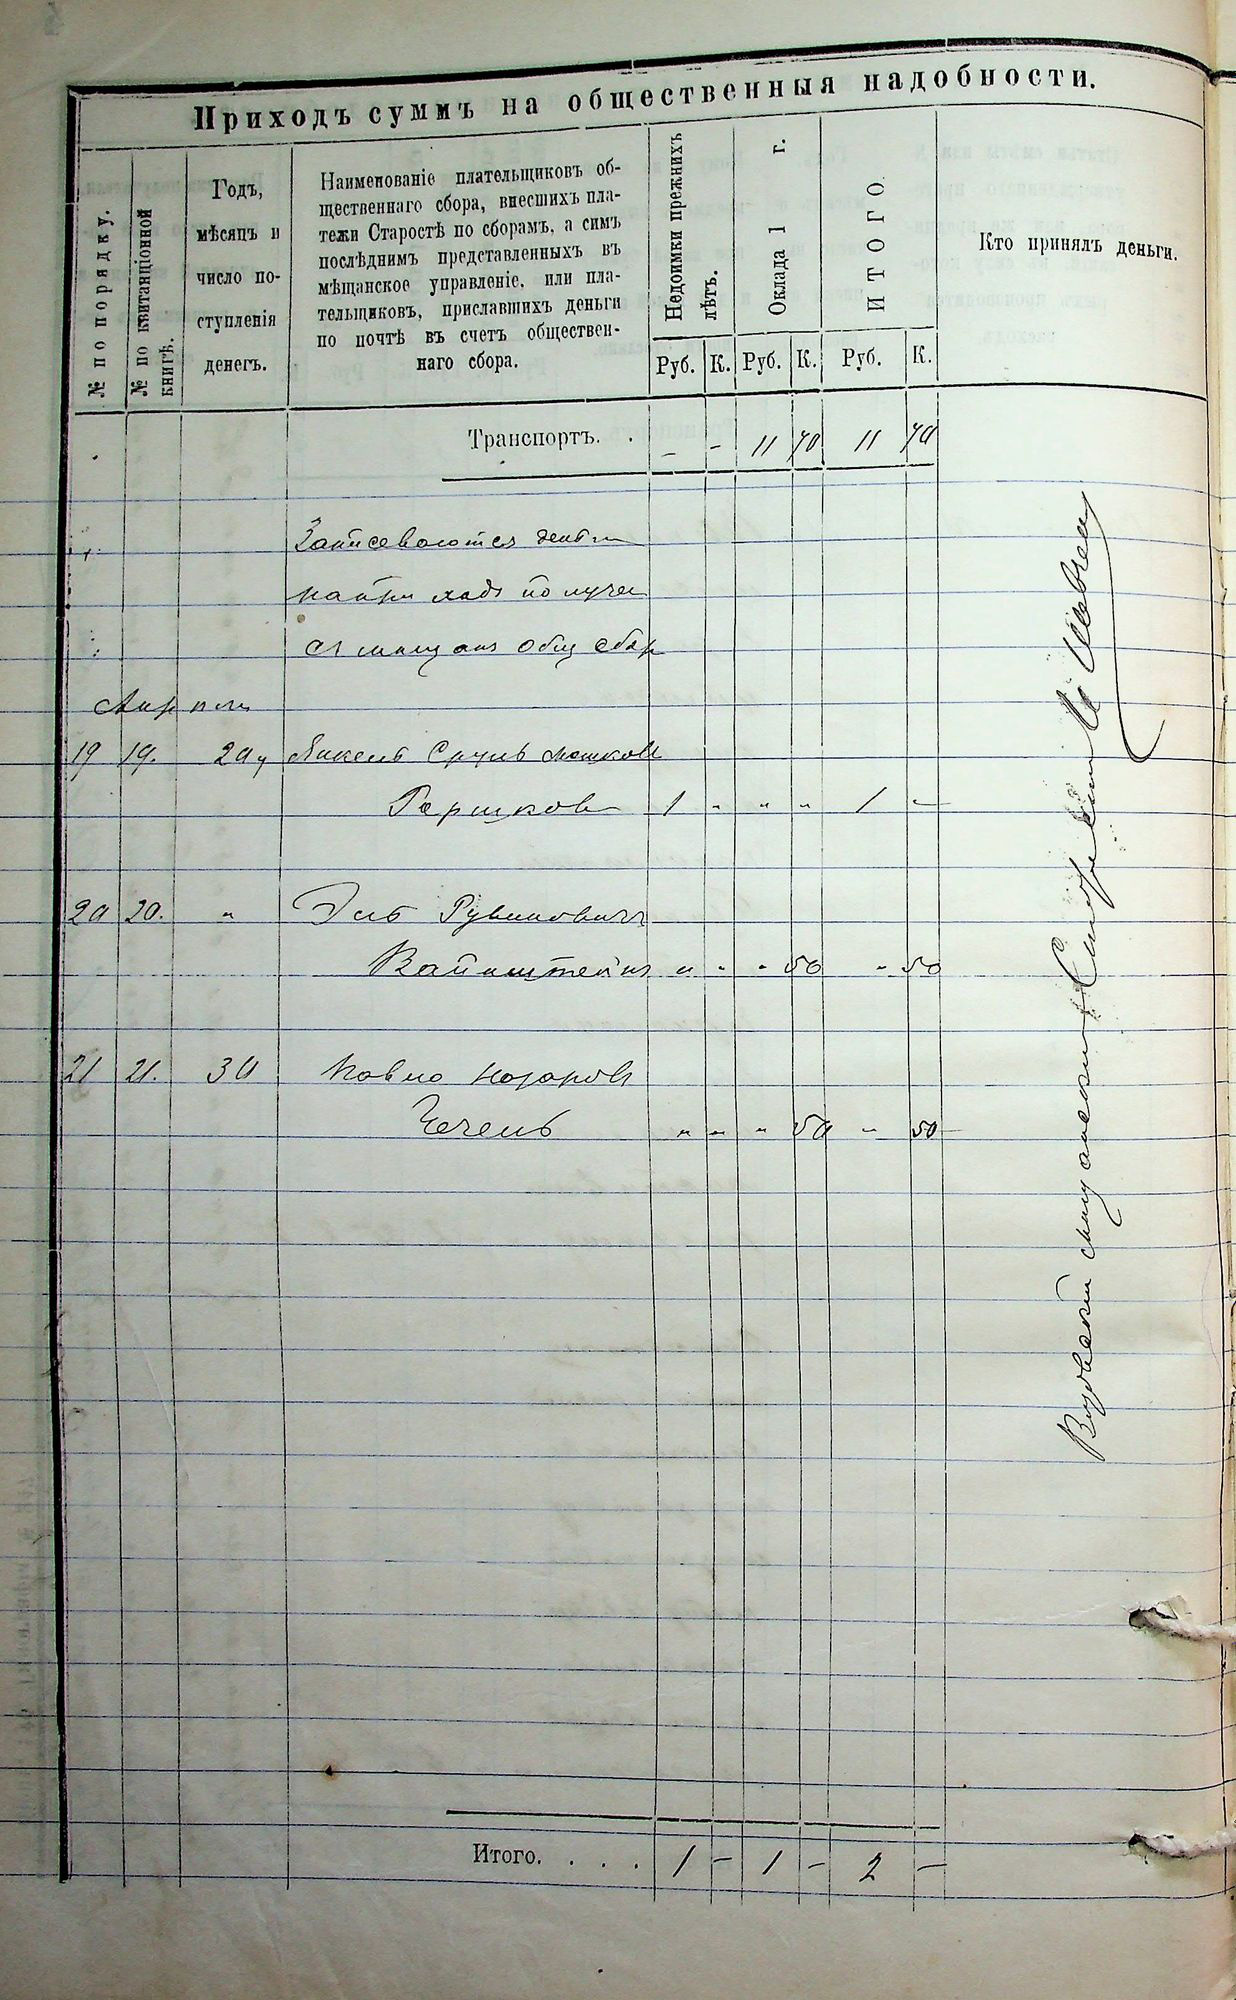 Приходъ суммъ на общественныя надобности.
№ по порядку.
№ по квитанціонной книгѣ.
Годъ,
мѣсяцъ и
число по-
ступленія
денегъ.
Наименованіе плательщиковъ об-
щественнаго сбора, внесшихъ пла-
тежи Старостѣ по сборамъ, а симъ
послѣднимъ представленныхъ въ
мѣщанское управленіе, или пла-
тельщиковъ, приславшихъ деньги
по почтѣ въ счетъ обществен-
наго сбора.
Недоимки прежнихъ
лѣтъ.
Оклада 1 г.
ИТОГО
Кто принялъ деньги.
Руб. К. Руб. К. Руб. К.
Транспортъ. . - - 11 70 11 70
Записеваются
общ сбор
19 19. Сруль Мошков
Гершков 1 " " " 1 -
20 20. " Рувинович
Вайнштейн " " " 50 " 50
21 21. 30 Павло Назаров
Чечель " " " 50 " 50
Итого. . . . 1 - 1 - 2 -